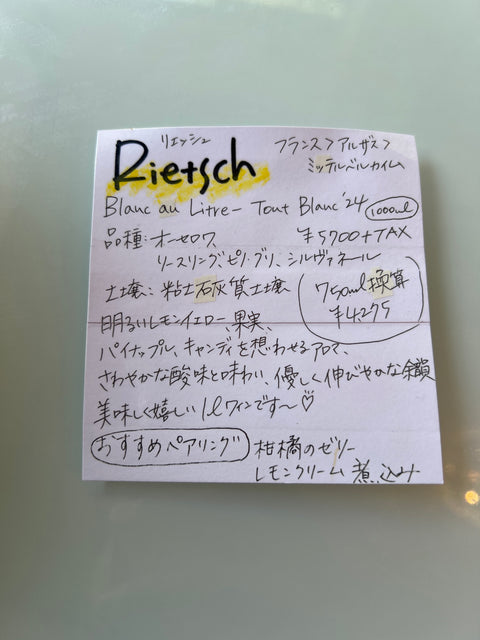 リエッシュ
Rietsch
フランス > アルザス >
ミッテルベルカイム
Blanc au Litre - Tout Blanc '24 1000ml
品種: オーセロワ
リースリング、ピノ・グリ、シルヴァネール
¥5700+TAX
土壌: 粘土石灰質土壌
750ml換算
¥4,275
明るいレモンイエロー、果実、
パイナップル、キャンディを想わせるアロマ、
さわやかな酸味と味わい、優しく伸びやかな余韻
美味しく嬉しい1Lワインです〜♡
おすすめペアリング
柑橘のゼリー
レモンクリーム煮込み